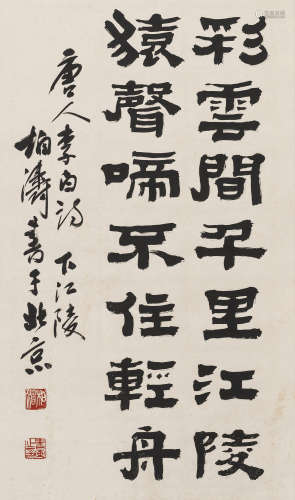 彩雲間千里江陵
猿聲啼不住輕舟
唐人李白詩 下江陵
柏濤書于北京